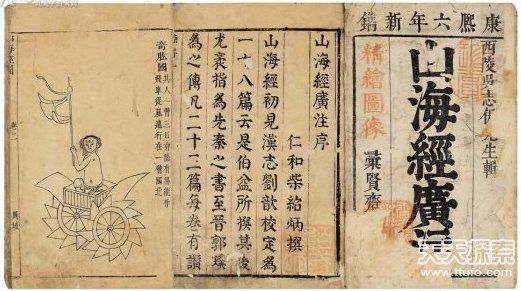 康熙六年新鐫
西陵吳志伊先生輯
山海經廣注
精繪圖像
彙賢齋
山海經廣注序
仁和柴紹炳撰
山海經初見漢志劉歆校定為
一十八篇云是伯益所撰其後
尤袤指為先秦之書至晉郭璞
為之傳凡二十二篇海卷有讚
奇肱國其人一臂三目有陰有陽能作
飛車從風遠行在一臂國北
卷二
異域
天天探索
www.ttufo.com